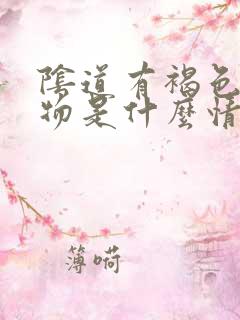 陰道有褐色
物是什麼情
簿嗬